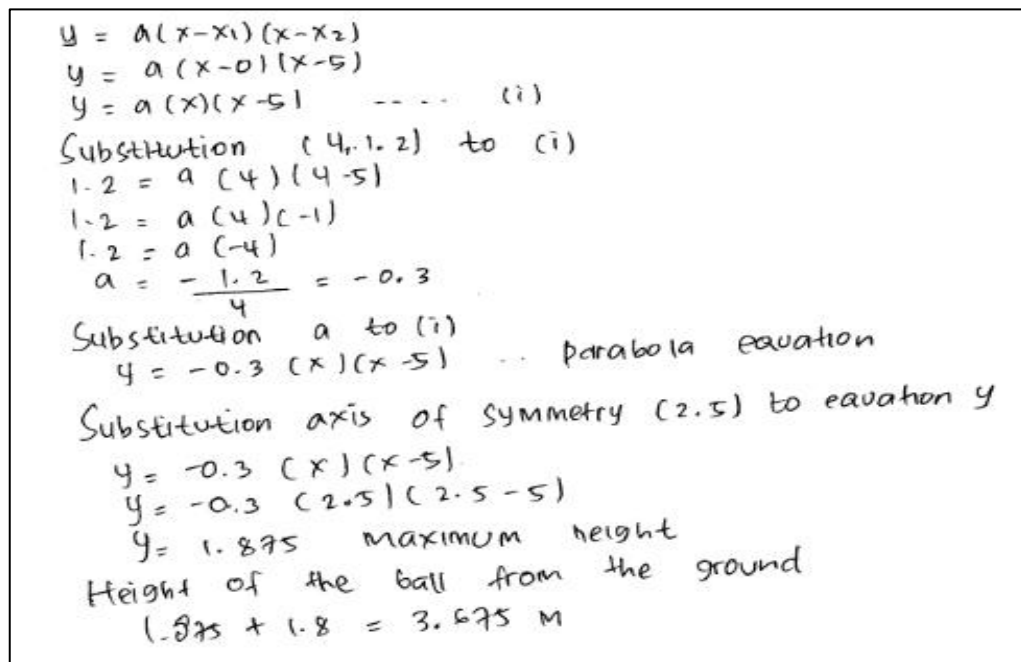 y = a(x-x1)(x-x2)
y = a(x-0)(x-5)
y = a(x)(x-5) ..... (i)
Substitution (4, 1.2) to (i)
1.2 = a (4)(4-5)
1.2 = a (4)(-1)
1.2 = a (-4)
a = - 1.2/4 = -0.3
Substitution a to (i)
y = -0.3 (x)(x-5) .. parabola equation
Substitution axis of symmetry (2.5) to equation y
y = -0.3 (x)(x-5)
y = -0.3 (2.5)(2.5-5)
y = 1.875 maximum height
Height of the ball from the ground
1.875 + 1.8 = 3.675 m